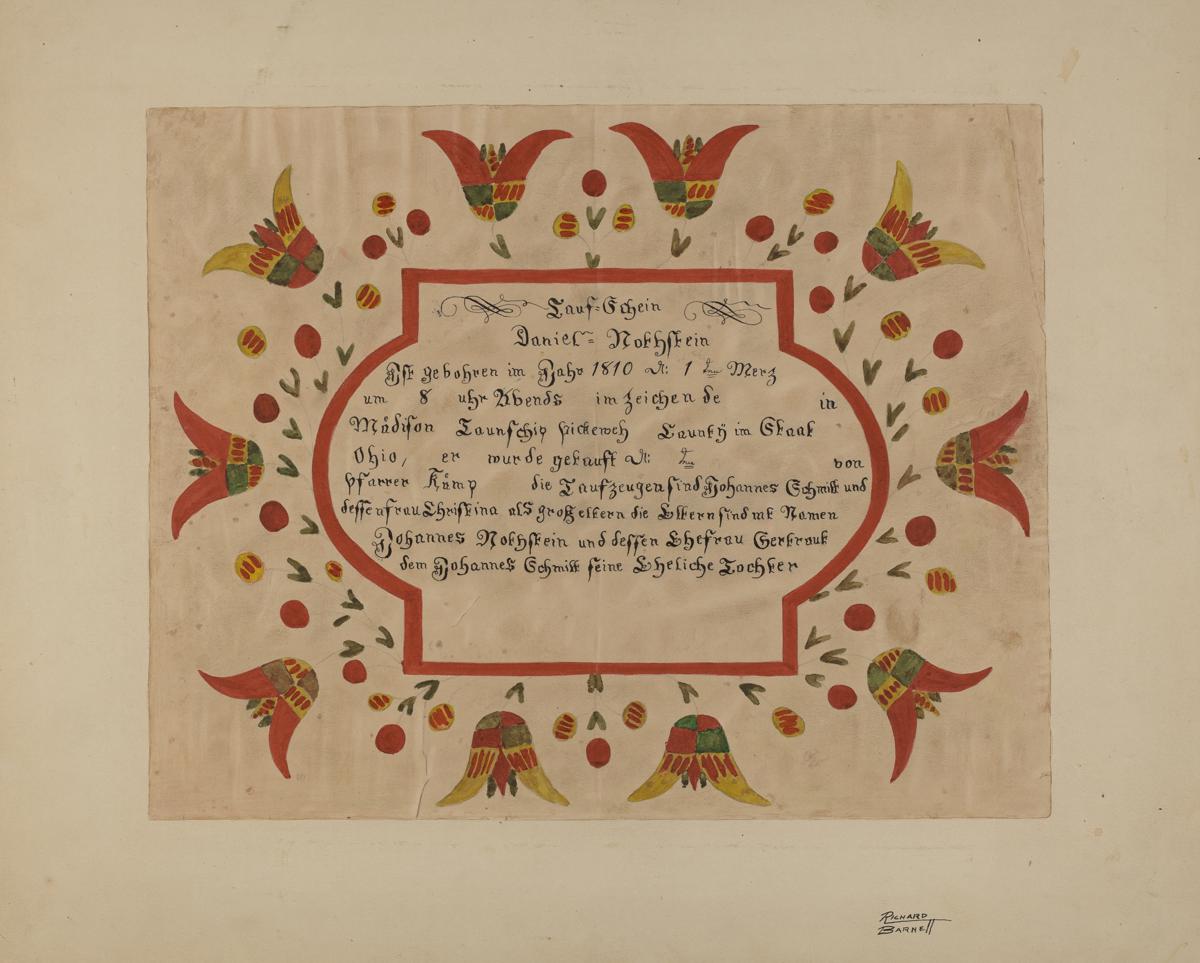 Tauf=Schein
Daniel= Nothstein
Ist gebohren im Jahr 1810 dt: 1 ten Merz
um 8 uhr Abends im zeichen de in
Mådison Taunschip pickeweh Caunty im Staat
Ohio, er wurde getauft dt: ten von
pfarrer Kåmp die Taufzeugen sind Johannes Schmitt und
dessen frau Christina als großeltern die Eltern sind mt Namen
Johannes Nothstein und dessen Ehefrau Gertraut
dem Johannes Schmitt seine Eheliche Tochter
RICHARD
BARNETT